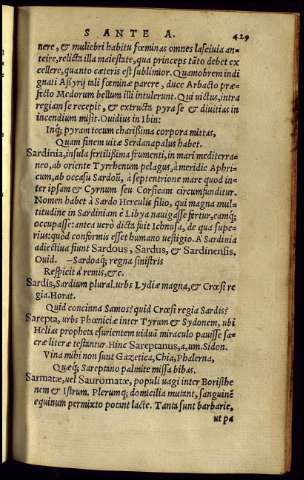 SANTE A. 429
nere, & muliebri habitu fœminas omnes lasciuia an-
teire, relicta illa maiestate, qua princeps tãto debet ex
cellere, quanto cæteris est sublimior. Quamobrem indi
gnati Assyrij tali fœminæ parere, duce Arbacto præ-
fecto Medorum bellum illi intulerunt. Qui uictus, intra
regiam se recepit, & extructa pyra se & diuitias in
incendium misit. Ouidius in Ibin:
Inq; pyram tecum charissima corpora mittas,
Quam finem uitæ Serdanapalus habet.
Sardinia, insula fertilissima frumenti, in mari mediterra-
neo, ab oriente Tyrrhenum pelagus, à meridie Aphri-
cum, ab occasu Sardoũ, à septentrione mare quod in-
ter ipsam & Cyrnum seu Corsicam circumfunditur.
Nomen habet à Sardo Herculis filio, qui magna mul-
titudine in Sardiniam è Libya nauigasse fertur, eamq;
occupasse: antea uerò dicta fuit Ichnusa, de qua supe-
rius: quòd conformis esset humano uestigio. A Sardinia
adiectiua sunt Sardous, Sardus, & Sardinensis,
Ouid. –Sardoaq; regna sinistris
Respicit à remis, &c.
Sardis, Sardium plural. urbs Lydiæ magna, & Crœsi re
gia. Horat.
Quid concinna Samos? quid Crœsi regia Sardis?
Sarepta, urbs Phœniciæ inter Tyrum & Sydonem, ubi
Helias propheta esurientem uiduã miraculo pauisse sa-
cræ literæ testantur. Hinc Sareptanus, a, um. Sidon.
Vina mihi non sunt Gazetica, Chia, Phalerna,
Quæq; Sareptano palmite missa bibas.
Sarmatæ, uel Sauromatæ, populi uagi inter Boristhe
nem & Istrum. Plerumq; domicilia mutant, sanguinẽ
equinum permixto potant lacte. Tanta sunt barbarie,
ut pa